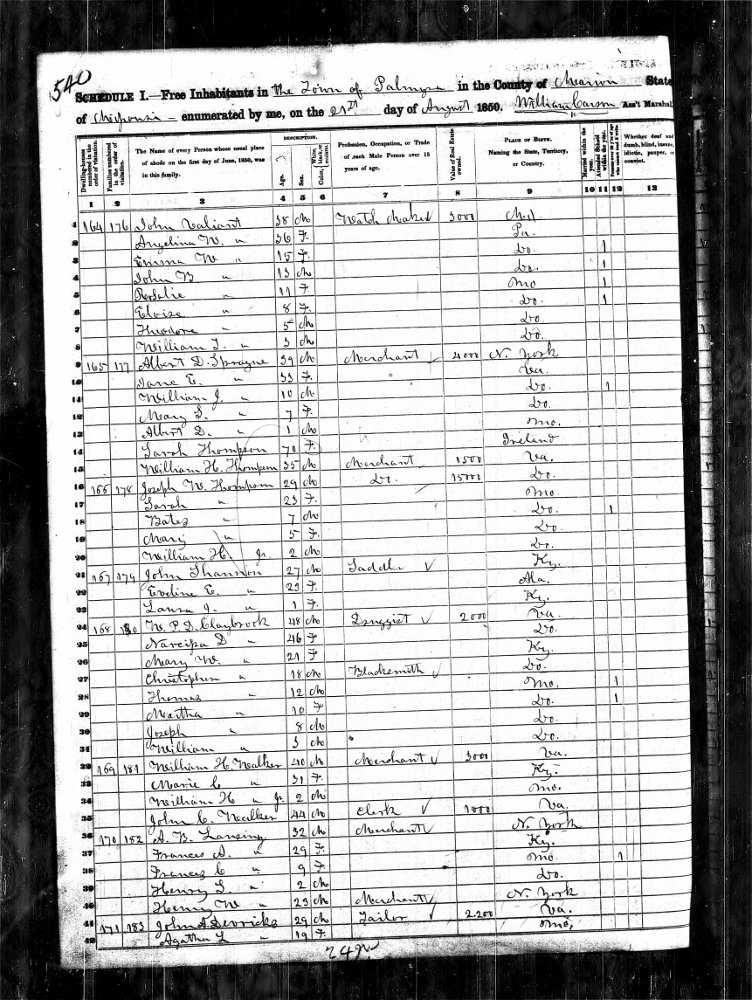 540
SCHEDULE I.—Free Inhabitants in the Town of Palmyra in the County of Marion State
of Missouri - enumerated by me, on the 21st day of August 1850. William Carson Ass't Marshal
Dwelling-houses numbered in the order of visitation.
Families numbered in the order of visitation.
The Name of every Person whose usual place of abode on the first day of June, 1850, was in this family.
DESCRIPTION.
Age.
Sex.
Color, { white, black, or mulatto.
Profession, Occupation, or Trade of each Male Person over 15 years of age.
Value of Real Estate owned.
PLACE OF BIRTH. Naming the State, Territory, or Country.
Married within the year.
Attended School within the year.
Persons over 20 y'rs of age who cannot read & write.
Whether deaf and dumb, blind, insane, idiotic, pauper, or convict.
1 2 3 4 5 6 7 8 9 10 11 12 13
1 164 176 John Valiant 38 M Watch Maker 3000 Md.
2 Angelina W. " 36 F. Pa.
3 Emma W " 15 F. Do. 1
4 John B " 13 M Do. 1
5 Rosalie " 11 F. Mo 1
6 Eloise " 8 F. Do. 1
7 Theodore " 5 M Do.
8 William T. " 3 M Do.
9 165 177 Albert D. Sprague 39 M Merchant 4000 N. York
10 Jane E. " 33 F. Va.
11 William J. " 10 M Do. 1
12 Mary S. " 7 F. Do.
13 Albert D. " 1 M Mo.
14 Sarah Thompson 70 F. Ireland
15 William H. Thompson 35 M Merchant 1500 Va.
16 166 178 Joseph W. Thompson 29 M Do. 15000 Do.
17 Sarah " 23 F. Mo.
18 Bates " 7 M Do. 1
19 Mary " 5 F. Do.
20 William H. " Jr. 2 M Do.
21 167 179 John Shannon 27 M Saddler Ky.
22 Eveline E. " 23 F. Ala.
23 Laura J. " 1 F. Ky.
24 168 180 W. P. D. Claybrook 48 M Druggist 2000 Va.
25 Narcissa D " 46 F Do.
26 Mary W. " 21 F Ky.
27 Christopher " 18 M Blacksmith Do.
28 Thomas " 12 M Mo. 1
29 Martha " 10 F Do. 1
30 Joseph " 8 M Do.
31 William " 3 M Do.
32 169 181 William H. Walker 40 M Merchant 3000 Va.
33 Marie C " 31 F. Ky.
34 William H " Jr. 2 M Mo.
35 John C. Walker 44 M Clerk 1000 Va.
36 170 182 A. B. Lansing 32 M Merchant N. York
37 Frances A. " 29 F. Ky.
38 Frances C " 9 F. Mo 1
39 Henry L " 2 M Do.
40 Henry W " 23 M Merchant N. York
41 171 183 John Derricks 29 M Tailor 2.200 Va.
42 Agatha L " 19 F. Mo,